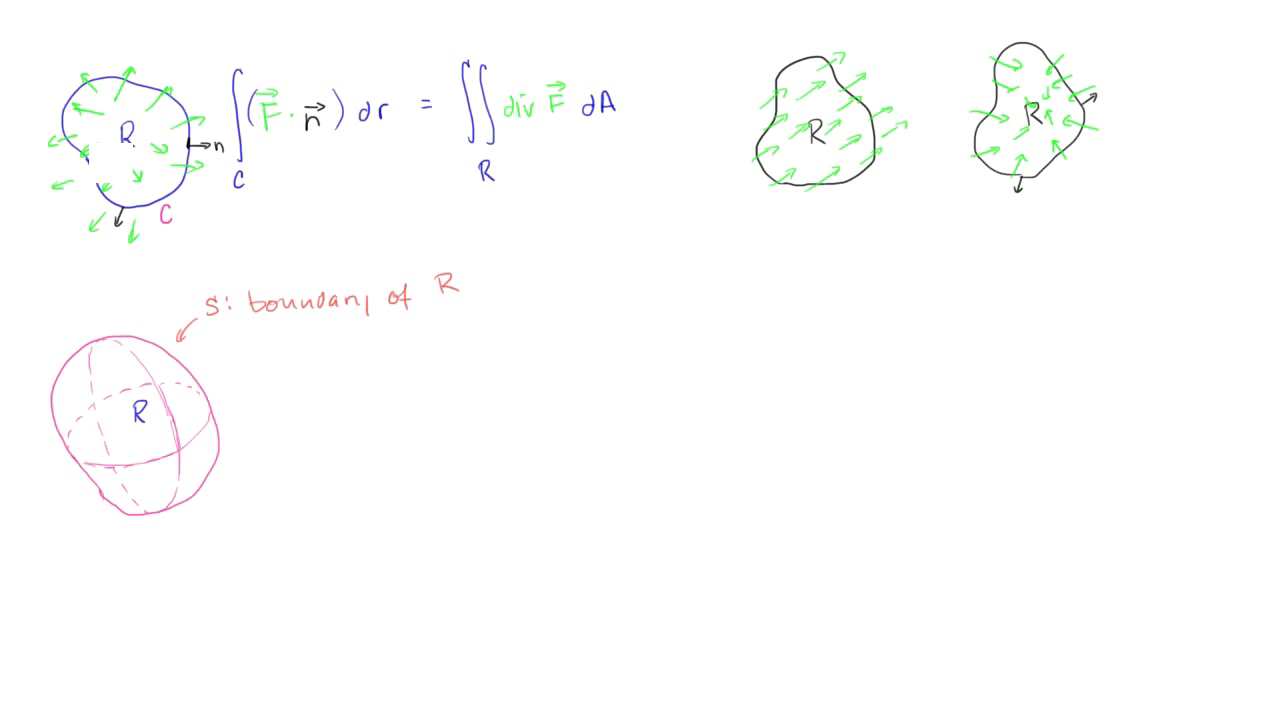 R
n
C
∫_C (F⃗ · n⃗) dr = ∬_R div F⃗ dA
R
R
S: boundary of R
R